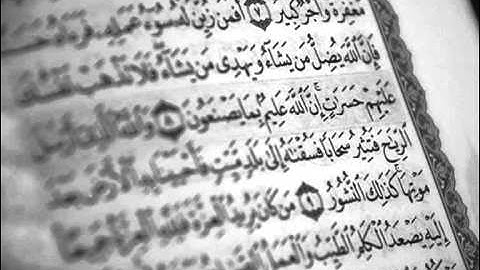 مَّغْفِرَةٌ وَأَجْرٌ كَبِيرٌ ٧ أَفَمَن زُيِّنَ لَهُ سُوءُ عَمَلِهِ فَرَءَاهُ حَسَنًا
فَإِنَّ اللَّهَ يُضِلُّ مَن يَشَاءُ وَيَهْدِي مَن يَشَاءُ فَلَا تَذْهَبْ نَفْسُكَ
عَلَيْهِمْ حَسَرَاتٍ إِنَّ اللَّهَ عَلِيمٌ بِمَا يَصْنَعُونَ ٨ وَاللَّهُ الَّذِي أَرْسَلَ
الرِّيَاحَ فَتُثِيرُ سَحَابًا فَسُقْنَاهُ إِلَى بَلَدٍ مَّيِّتٍ فَأَحْيَيْنَا بِهِ الْأَرْضَ بَعْدَ
مَوْتِهَا كَذَلِكَ النُّشُورُ ٩ مَن كَانَ يُرِيدُ الْعِزَّةَ فَلِلَّهِ الْعِزَّةُ جَمِيعًا
إِلَيْهِ يَصْعَدُ الْكَلِمُ الطَّيِّبُ وَالْعَمَلُ